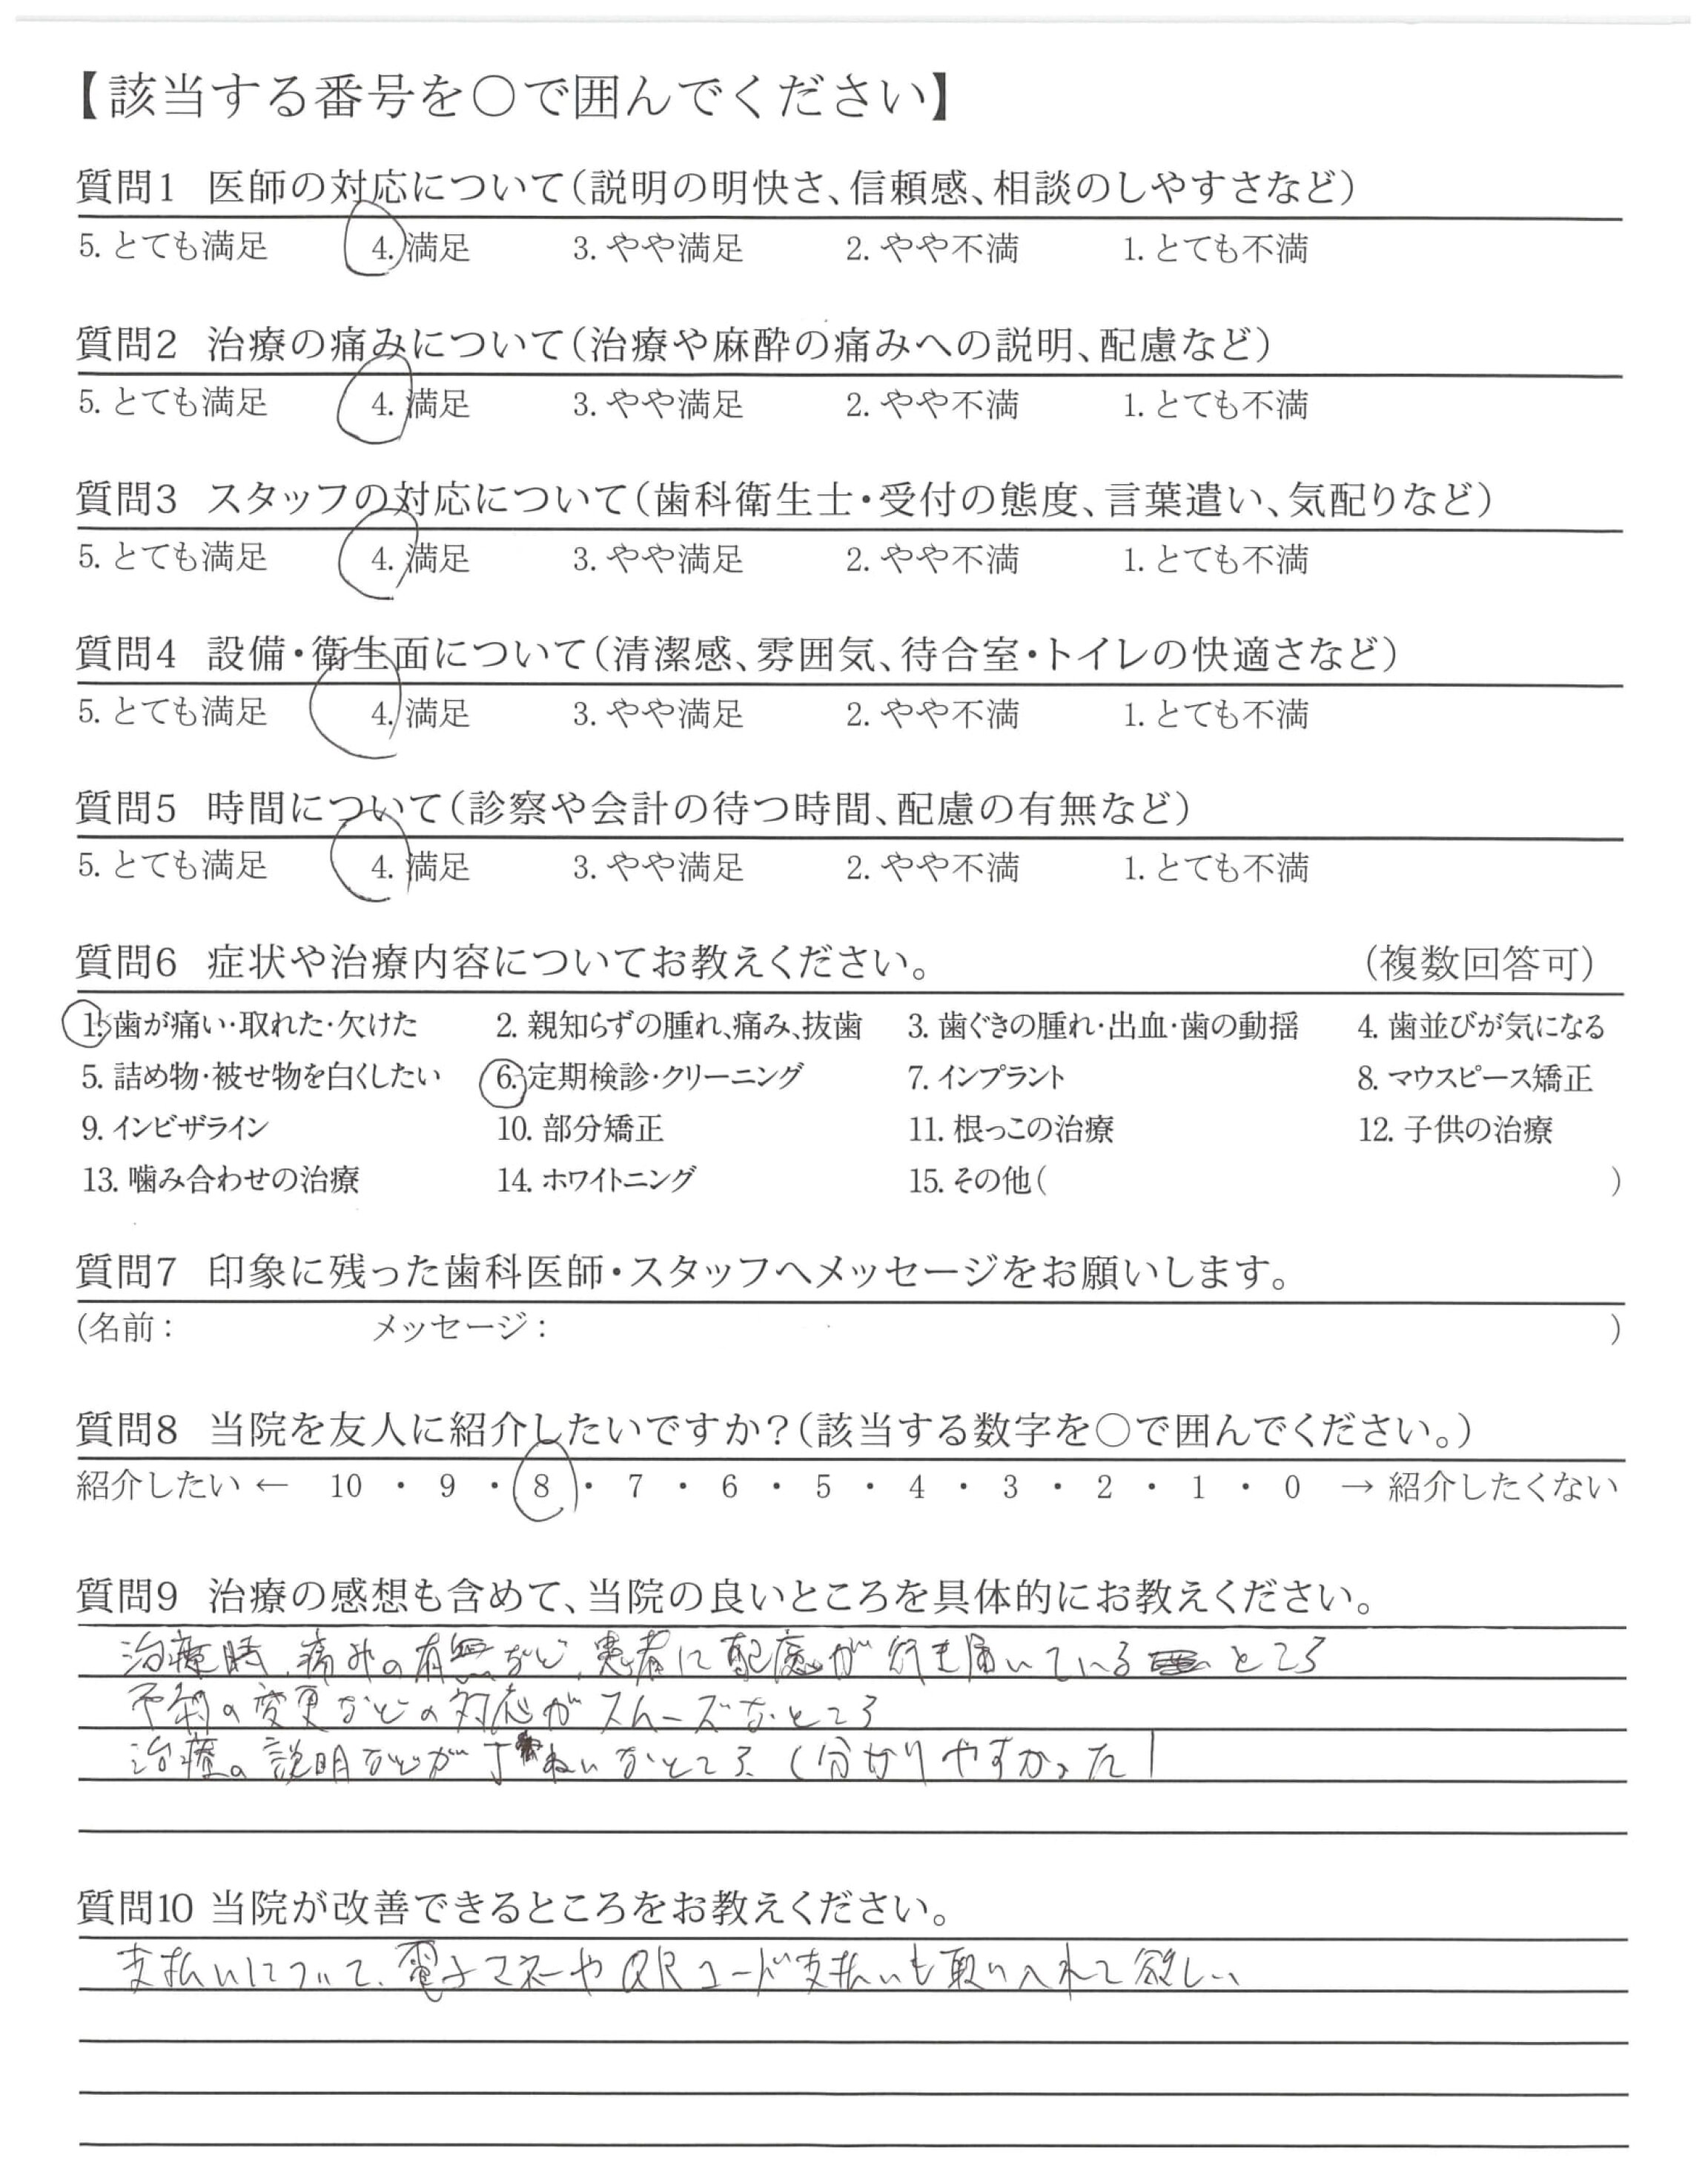 【該当する番号を○で囲んでください】
質問1 医師の対応について(説明の明快さ、信頼感、相談のしやすさなど)
5. とても満足 4. 満足 3. やや満足 2. やや不満 1. とても不満
質問2 治療の痛みについて(治療や麻酔の痛みへの説明、配慮など)
5. とても満足 4. 満足 3. やや満足 2. やや不満 1. とても不満
質問3 スタッフの対応について(歯科衛生士・受付の態度、言葉遣い、気配りなど)
5. とても満足 4. 満足 3. やや満足 2. やや不満 1. とても不満
質問4 設備・衛生面について(清潔感、雰囲気、待合室・トイレの快適さなど)
5. とても満足 4. 満足 3. やや満足 2. やや不満 1. とても不満
質問5 時間について(診察や会計の待つ時間、配慮の有無など)
5. とても満足 4. 満足 3. やや満足 2. やや不満 1. とても不満
質問6 症状や治療内容についてお教えください。 (複数回答可)
1. 歯が痛い・取れた・欠けた 2. 親知らずの腫れ、痛み、抜歯 3. 歯ぐきの腫れ・出血・歯の動揺 4. 歯並びが気になる
5. 詰め物・被せ物を白くしたい 6. 定期検診・クリーニング 7. インプラント 8. マウスピース矯正
9. インビザライン 10. 部分矯正 11. 根っこの治療 12. 子供の治療
13. 噛み合わせの治療 14. ホワイトニング 15. その他( )
質問7 印象に残った歯科医師・スタッフへメッセージをお願いします。
(名前: メッセージ: )
質問8 当院を友人に紹介したいですか?(該当する数字を○で囲んでください。)
紹介したい ← 10 ・ 9 ・ 8 ・ 7 ・ 6 ・ 5 ・ 4 ・ 3 ・ 2 ・ 1 ・ 0 → 紹介したくない
質問9 治療の感想も含めて、当院の良いところを具体的にお教えください。
治療時、痛みの有無など、患者に配慮が行き届いているところ
予約の変更などの対応がスムーズなところ
治療の説明などが丁ねいなところ(分かりやすかった)
質問10 当院が改善できるところをお教えください。
支払いについて、電子マネーやQRコード支払いも取り入れて欲しい